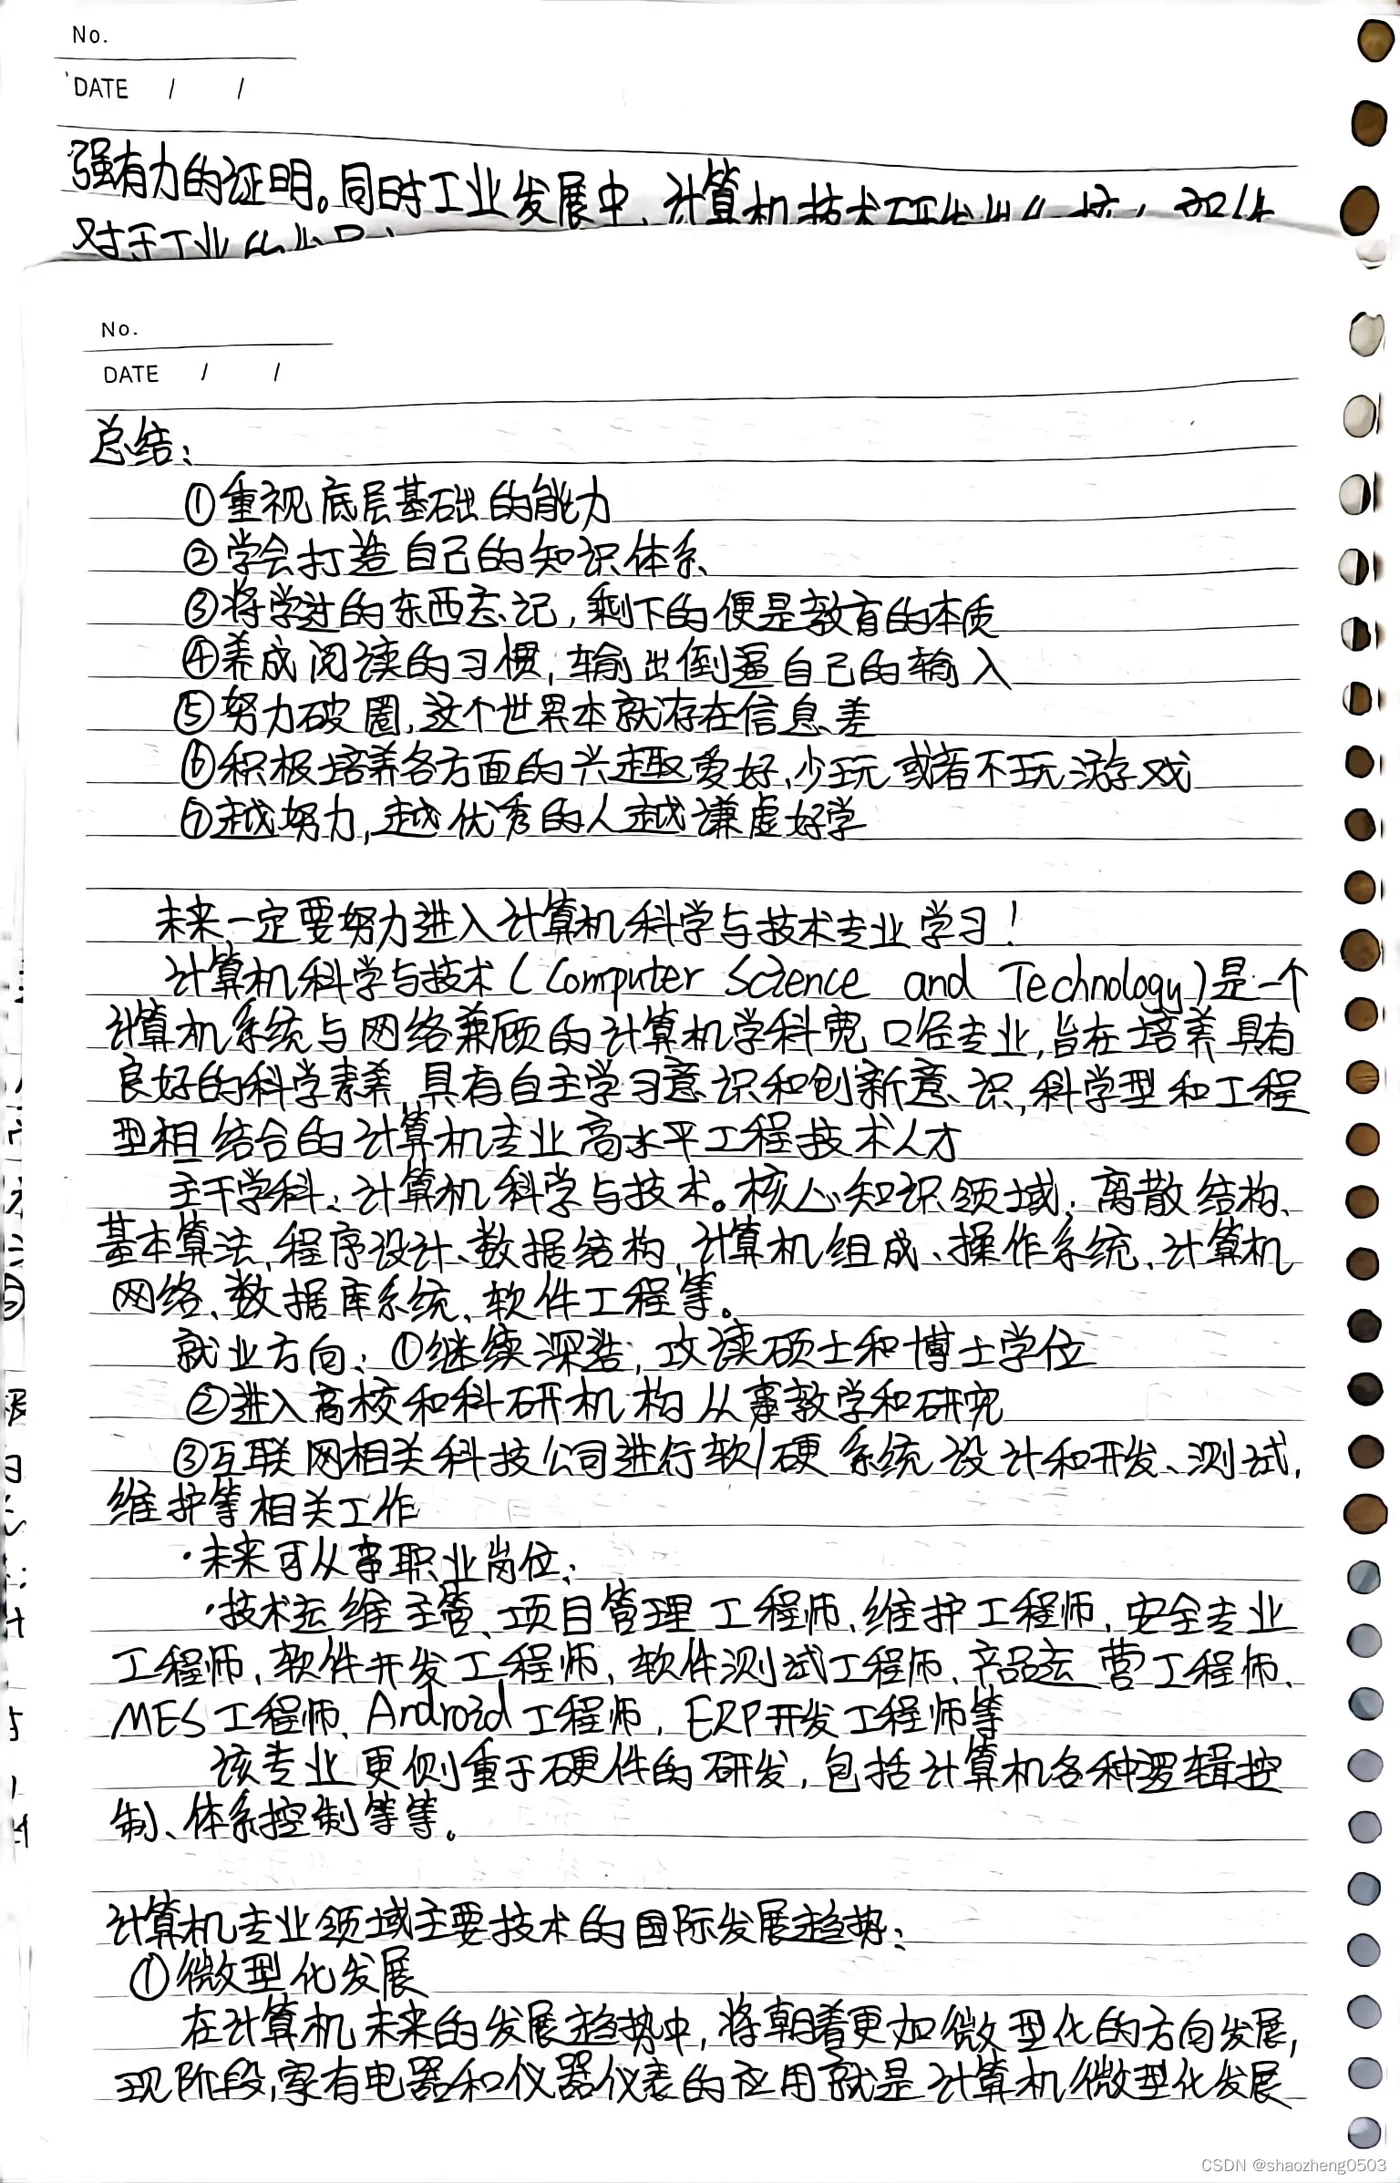 No.
DATE / /
强有力的证明。同时工业发展中,计算机技术
对于工业
No.
DATE / /
总结:
①重视底层基础的能力
②学会打造自己的知识体系
③将学过的东西忘记,剩下的便是教育的本质
④养成阅读的习惯,输出倒逼自己的输入
⑤努力破圈,这个世界本就存在信息差
⑥积极培养各方面的兴趣爱好,少玩或者不玩游戏
⑦越努力,越优秀的人越谦虚好学
未来一定要努力进入计算机科学与技术专业学习!
计算机科学与技术(Computer Science and Technology)是一个
计算机系统与网络兼顾的计算机学科宽口径专业,旨在培养具有
良好的科学素养,具有自主学习意识和创新意识,科学型和工程
型相结合的计算机专业高水平工程技术人才
主干学科:计算机科学与技术。核心知识领域:离散结构、
基本算法、程序设计、数据结构、计算机组成、操作系统、计算机
网络、数据库系统、软件工程等。
就业方向:①继续深造,攻读硕士和博士学位
②进入高校和科研机构从事教学和研究
③互联网相关科技公司进行软/硬系统设计和开发、测试,
维护等相关工作
·未来可从事职业岗位:
·技术运维主管、项目管理工程师、维护工程师、安全专业
工程师、软件开发工程师、软件测试工程师、产品运营工程师、
MES工程师、Android工程师、ERP开发工程师等
该专业更侧重于硬件的研发,包括计算机各种逻辑控
制、体系控制等等。
计算机专业领域主要技术的国际发展趋势:
①微型化发展
在计算机未来的发展趋势中,将朝着更加微型化的方向发展,
现阶段,家有电器和仪器仪表的应用就是计算机微型化发展
CSDN @shaozheng0503